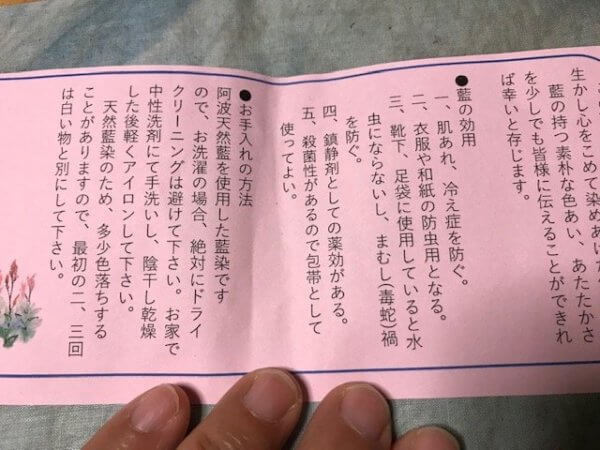 生かし心をこめて染めあげた
藍の持つ素朴な色あい、あたたかさ
を少しでも皆様に伝えることができれ
ば幸いと存じます。
●藍の効用
一、肌あれ、冷え症を防ぐ。
二、衣服や和紙の防虫用となる。
三、靴下、足袋に使用していると水
虫にならないし、まむし(毒蛇)禍
を防ぐ。
四、鎮静剤としての薬効がある。
五、殺菌性があるので包帯として
使ってよい。
●お手入れの方法
阿波天然藍を使用した藍染です
ので、お洗濯の場合、絶対にドライ
クリーニングは避けて下さい。お家で
中性洗剤にて手洗いし、陰干し乾燥
した後軽くアイロンして下さい。
天然藍染のため、多少色落ちする
ことがありますので、最初の二、三回
は白い物と別にして下さい。